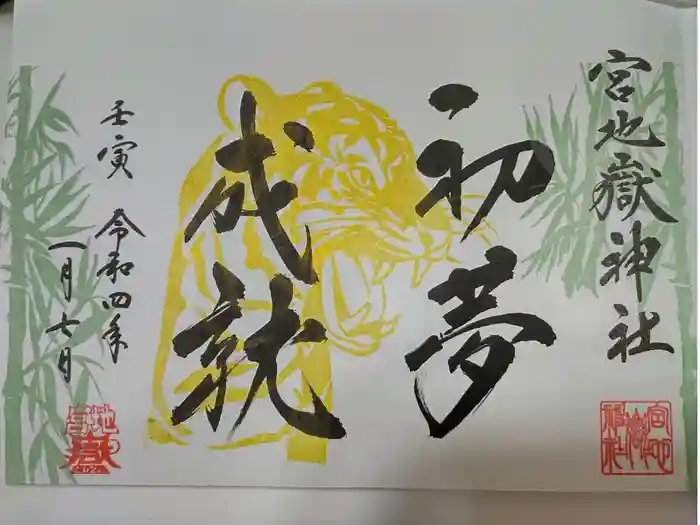 宮地嶽神社
初夢
成就
壬寅 令和四年
一月七日
宮地嶽神社